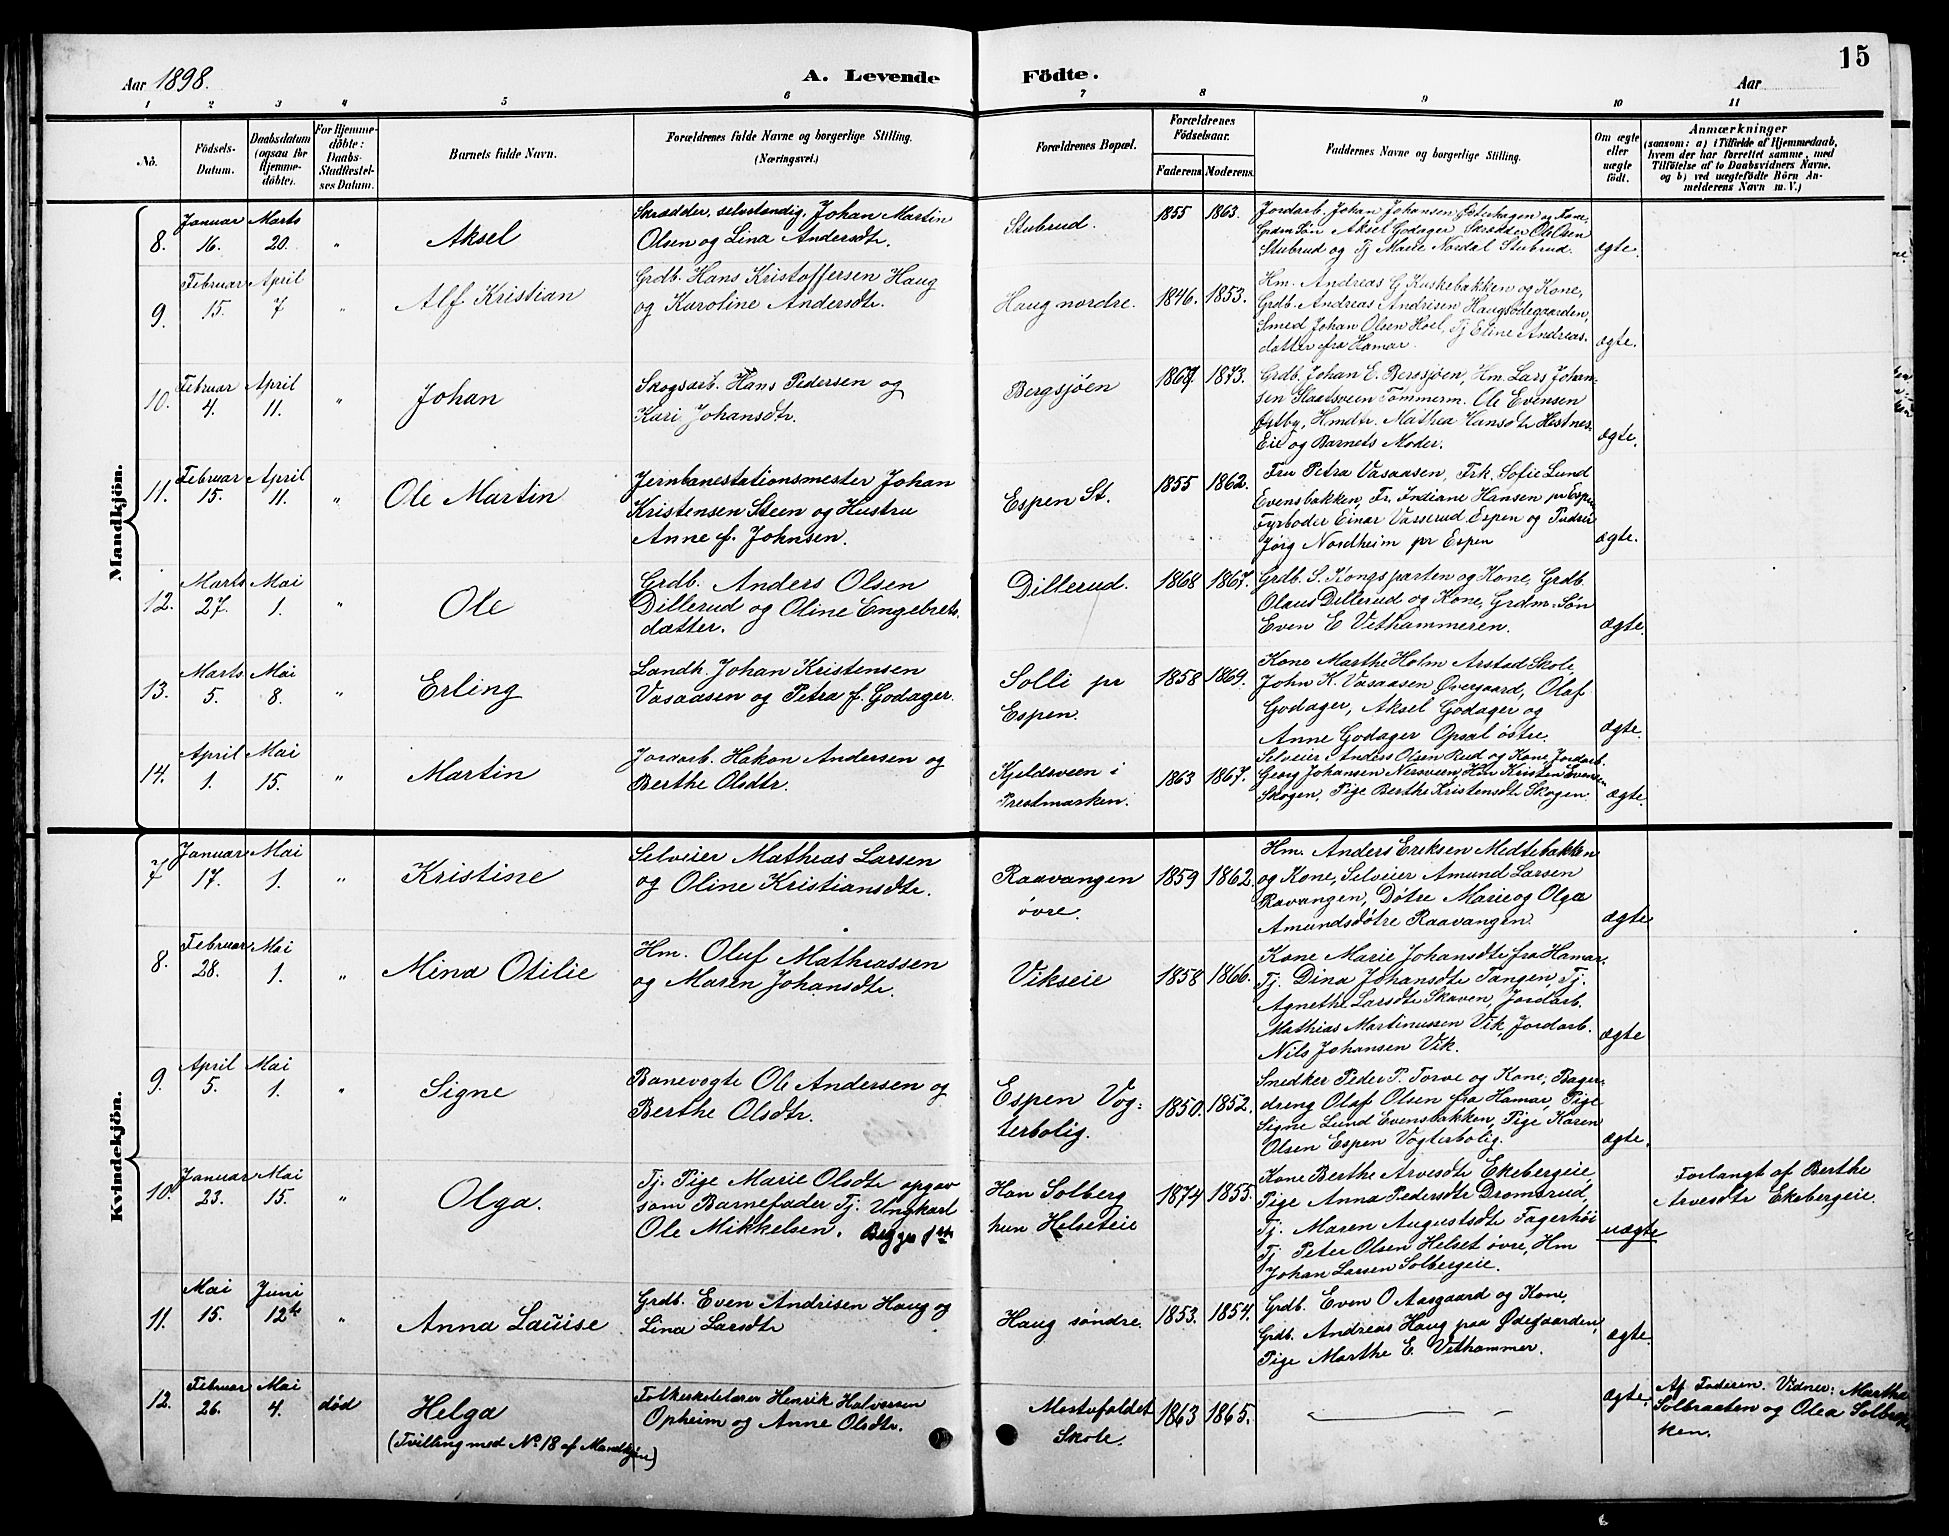 15
Aar 1898.
A. Levende Födte.
Aar
1 2 3 4 5 6 7 8 9 10 11
No.
Födsels-Datum.
Daabsdatum (ogsaa for Hjemme-döbte).
For Hjemme-döbte: Daabs-Stadfæstel-ses Datum.
Barnets fulde Navn.
Forældrenes fulde Navne og borgerlige Stilling. (Næringsvei.)
Forældrenes Bopæl.
Forældrenes Födselsaar.
Faderens Moderens
Faddernes Navne og borgerlige Stilling.
Om ægte eller uægte födt.
Anmærkninger
(saasom: a) i Tilfælde af Hjemmedaab, hvem der har forrettet samme, med Tilföielse af to Daabsvidners Navne. og b) ved uægtefödte Börn An-melderens Navn m. V.)
Mandkjön.
8. Januar 16. Marts 20. " Aksel
Skrædder, selvstændig, Johan Martin
Olsen og Lina Andersdtr.
Stubrud. 1855 1863.
Jordarb. Johan Johansen Østerhagen og Kone,
Grdm Søn Aksel Godager, Skrædder Ole Olsen
Stubrud og Tj Marie Nordal Stubrud. ægte.
9. Februar 15. April 7 " Alf Kristian
Grdb. Hans Kristoffersen Haug
og Karoline Andersdtr.
Haug nordre. 1846. 1853.
Hm. Andreas G Kuskebakken og Kone,
Grdb. Andreas Andrisen Haugsødegaarden,
Smed Johan Olsen Hoel, Tj Eline Andreas-
datter fra Hamar. ægte.
10. Februar 4. April 11. " Johan
Skogsarb. Hans Pedersen og
Kari Johansdtr.
Bergsjøen 1867. 1873.
Grdb. Johan E. Bergsjøen, Hm. Lars Johan-
sen Staatsveen Tømmerm. Ole Evensen
Østby, Hmdtr. Mathea Hansdtr Hestnes-
Eie og Barnets Moder. ægte.
11. Februar 15. April 11. " Ole Martin
Jernbanestationsmester Johan
Kristensen Steen og Hustru
Anne f. Johnsen.
Espen St. 1855 1862.
Fru Petra Vasaasen, Frk. Sofie Lund
Evensbakken, Fr. Indiane Hansen pr Espen
Fyrbøder Einar Vasserud Espen og
Jørg Nordheim pr Espen ægte.
12. Marts 27. Mai 1. " Ole
Grdb. Anders Olsen
Dillerud og Oline Engebrets-
datter.
Dillerud. 1868 1867.
Grdb. S. Kongsparten og Kone, Grdb.
Olaus Dillerud og Kone, Grdm. Søn
Even E Vethammeren. ægte.
13. Marts 5. Mai 8. " Erling
Landh. Johan Kristensen
Vasaasen og Petra f. Godager.
Solli pr
Espen. 1858 1869.
Kone Marthe Holm Arstad Skole
John K. Vasaasen Øvergaard, Olaf
Godager, Aksel Godager og
Anne Godager Opsal østre. ægte.
14. April 1. Mai 15. " Martin
Jordarb. Hakon Andersen og
Berthe Olsdtr.
Kjeldsveen i
Prestmarken. 1863 1867.
Selveier Anders Olsen Rud og Kone, Jordarb.
Georg Johansen Nersveen, Hm Kristen Evensen
Skogen, Pige Berthe Kristensdtr Skogen. ægte.
Kvindekjön.
7 Januar 17. Mai 1. " Kristine
Selveier Mathias Larsen
og Oline Kristiansdtr.
Raavangen
øvre. 1859 1862.
Hm. Anders Eriksen Medtebakken
og Kone, Selveier Amund Larsen
Ravangen, Døtre Marie og Olga
Amundsdøtre Raavangen. ægte
8. Februar 28. Mai 1. " Mina Otilie
Hm. Oluf Mathiassen
og Maren Johansdtr.
Vikseie 1858 1866.
Kone Marie Johansdtr fra Hamar.
Tj. Dina Johansdtr Tangen, Tj.
Agnethe Larsdtr Skaven, Jordarb.
Mathias Martinussen Vik, Jordarb.
Nils Johansen Vik. ægte
9. April 5. Mai 1. " Signe
Banevogte Ole Andersen og
Berthe Olsdtr.
Espen Vog-
terbolig. 1850. 1852.
Snedker Peder P. Torve og Kone, Bager-
dreng Olaf Olsen fra Hamar, Pige
Signe Lund Evensbakken, Pige Karen
Olsen Espen Vogterbolig. ægte.
10. Januar 23. Mai 15. " Olga.
Tj. Pige Marie Olsdtr opgav
som Barnefader Tj. Ungkarl
Ole Mikkelsen. Begges 1ste
Han Solberg
hun Helseteie 1874 1855.
Kone Berthe Arvesdtr Ekebergeie,
Pige Anna Pedersdtr Dromsrud,
Tj. Maren Augustsdtr Fagerhøi
Tj Peter Olsen Helset øvre, Hm
Johan Larsen Solbergeie. uægte
Forlangt af Berthe
Arvesdtr Ekebergeie.
11. Mai 15. Juni 12te " Anna Lauise
Grdb. Even Andrisen Haug og
Lina Larsdtr
Haug søndre. 1853. 1854.
Grdb. Even O Aasgaard og Kone,
Grdb. Andreas Haug paa Ødegaarden,
Pige Marthe E. Vethammer. ægte
12. Februar 26. Mai 4. død Helga
(Tvilling med No 18 af Mandkjøn)
Folkeskolelærer Henrik Halvorsen
Opheim og Anne Olsdtr.
Mostufaldet
Skole. 1863 1865. ægte.
Af Faderen. Vidner: Martha
Solbraaten og Olea Solbak-
ken.